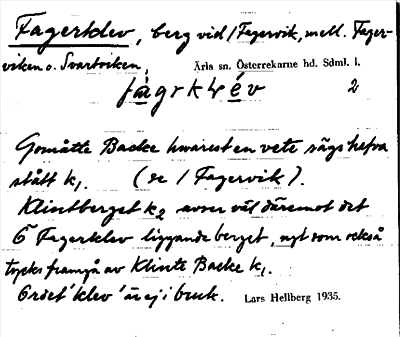 Fagerklev, berg vid / Fagervik, mell. Fager-
viken o. Svartviken,
Ärla sn. Österrekarne hd. Sdml. l.
fàgrklév 2
Gomåtte Backe hwarest en vete sägs hafva
stått k1. (se / Fagervik).
Klintberget k2 avser väl däremot det
Ö Fagerklev liggande berget, ngt som också
tycks framgå av Klinte Backe k1.
Ordet 'klev' är ej i bruk.
Lars Hellberg 1935.